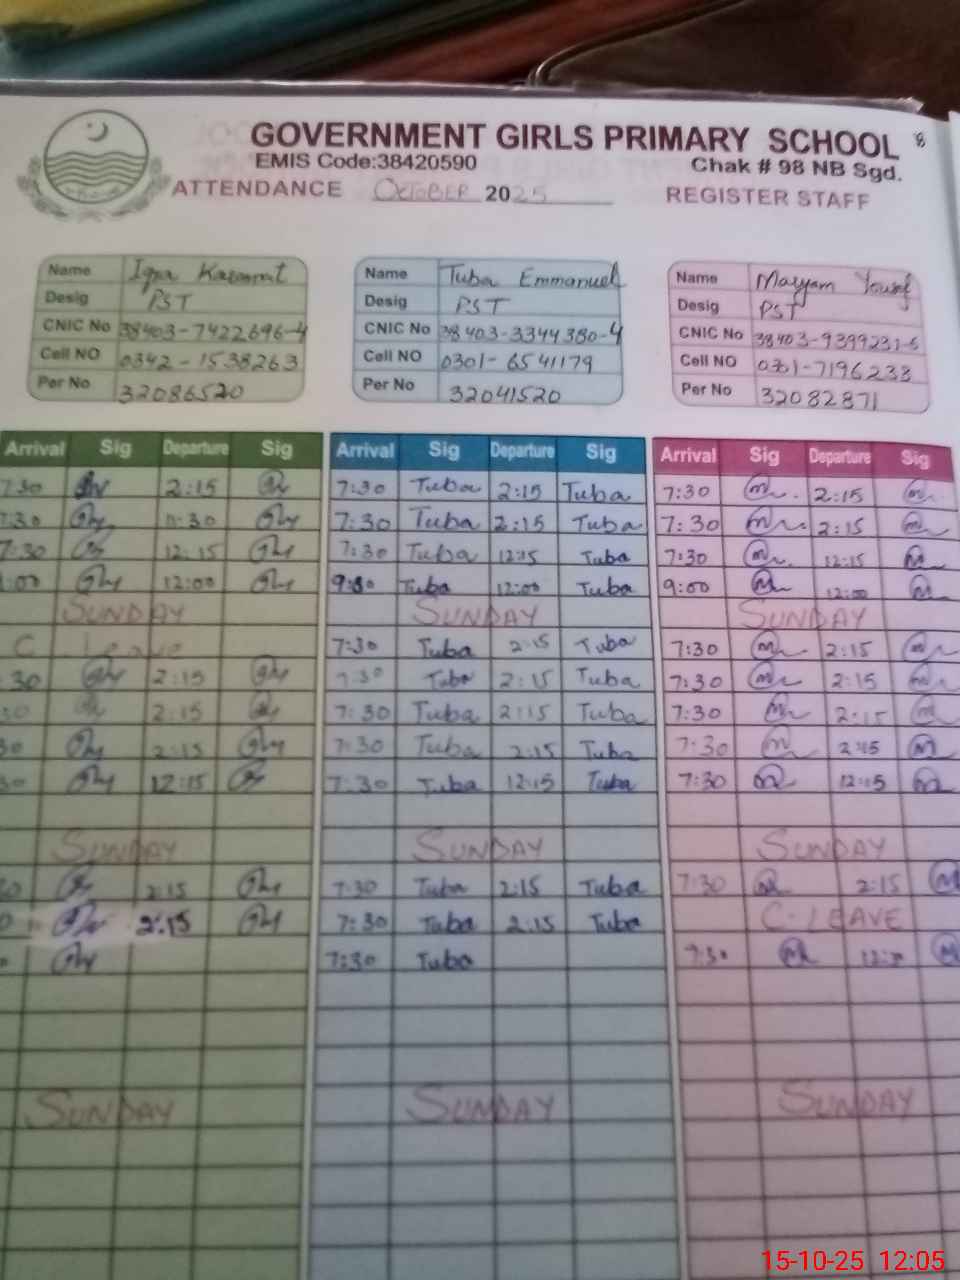 GOVERNMENT GIRLS PRIMARY SCHOOL
EMIS Code:38420590 Chak # 98 NB Sgd.
ATTENDANCE OCTOBER 2025 REGISTER STAFF
Name Iqra Name Tuba Emmanuel Name Maryam Yousaf
Desig PST Desig PST Desig PST
CNIC No 38403-7422696-4 CNIC No 38403-3344380-4 CNIC No 38403-9399231-6
Cell NO 0342-1538263 Cell NO 0301-6541179 Cell NO 0301-7196238
Per No 32086520 Per No 32041520 Per No 32082871
Arrival Sig Departure Sig Arrival Sig Departure Sig Arrival Sig Departure Sig
7:30 2:15 7:30 Tuba 2:15 Tuba 7:30 2:15
7:30 11:30 7:30 Tuba 2:15 Tuba 7:30 2:15
7:30 12:15 7:30 Tuba 12:15 Tuba 7:30 12:15
:00 12:00 9:30 Tuba 12:00 Tuba 9:00 12:00
SUNDAY SUNDAY SUNDAY
C Leave 7:30 Tuba 2:15 Tuba 7:30 2:15
:30 2:15 7:30 Tuba 2:15 Tuba 7:30 2:15
30 2:15 7:30 Tuba 2:15 Tuba 7:30 2:15
30 2:15 7:30 Tuba 2:15 Tuba 7:30 2:15
30 12:15 7:30 Tuba 12:15 Tuba 7:30 12:15
SUNDAY SUNDAY SUNDAY
30 2:15 7:30 Tuba 2:15 Tuba 7:30 2:15
2:15 7:30 Tuba 2:15 Tuba C. LEAVE
7:30 Tuba 7:30
SUNDAY SUNDAY SUNDAY
15-10-25 12:05